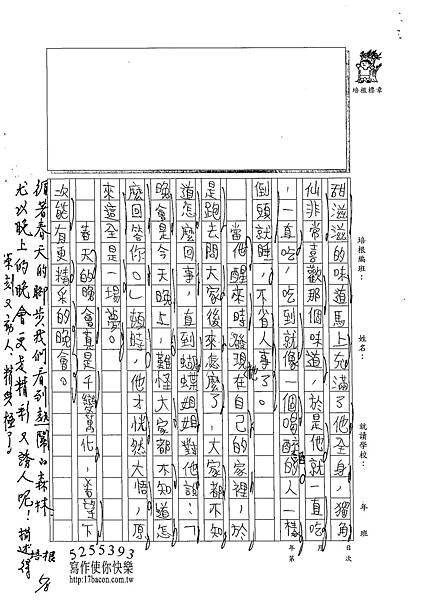 培根標章
培根編班：
姓名：
就讀學校：
年 班
年 月 日 次
甜滋滋的味道馬上充滿了他全身，獨角
仙非常喜歡那個味道，於是他就一直吃
，一直吃，吃到就像一個喝醉的人一樣
倒頭就睡，不省人事了。
當他醒來時發現在自己的家裡，於
是跑去問大家後來怎麼了，大家都不知
道怎麼回事，直到蝴蝶姐姐對他說：「
晚會是今天晚上，難怪大家都不知道怎
麼回答你。」頓時，他才恍然大悟，原
來這全是一場夢。
春天的晚會真是千變萬化，希望下
次能有更精采的晚會。
順著春天的腳步，我們看到熱鬧的森林
尤以晚上的晚會更是精彩又誘人呢，描述得
深刻又動人、精采極了
培根
5255393
寫作使你快樂
http://17bacon.com.tw